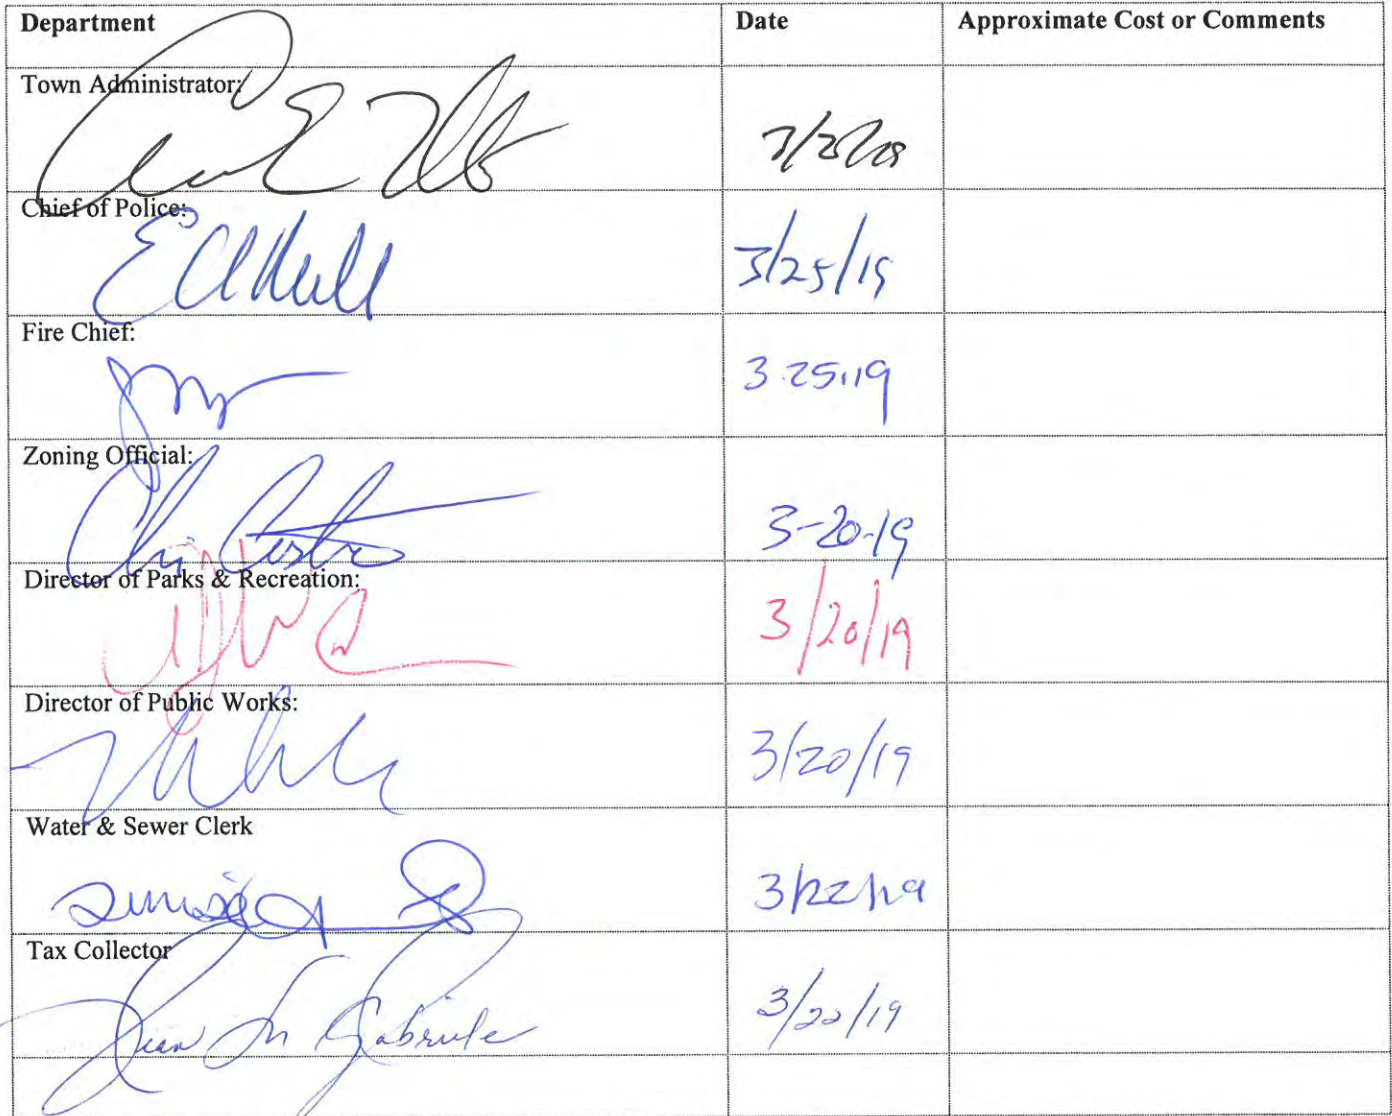 Department Date Approximate Cost or Comments
Town Administrator:
Chief of Police:
3/25/19
Fire Chief:
3.25.19
Zoning Official:
Chris Castro 3-20-19
Director of Parks & Recreation:
3/20/19
Director of Public Works:
3/20/19
Water & Sewer Clerk
3/22/19
Tax Collector
Jean M Gabriele 3/22/19